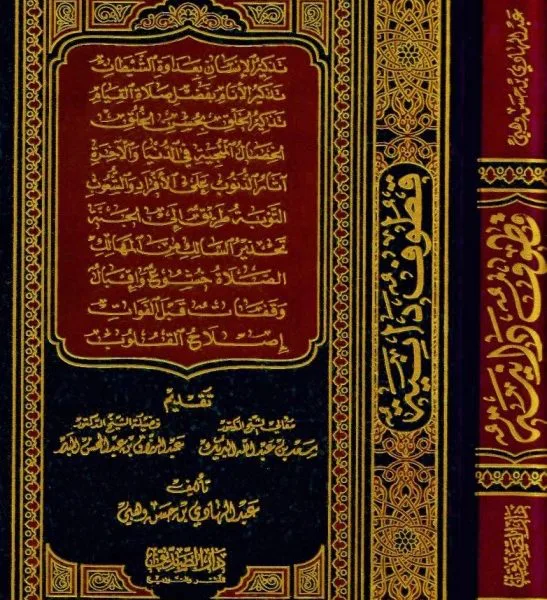 تذكير الإنسان بعداوة الشيطان
تذكير الأنام بفضل صلاة القيام
تذكير الخلق بحسن الخلق
الخصال المنجية في الدنيا والآخرة
آثار الذنوب على الأفراد والشعوب
التوبة طريق إلى الجنة
تحذير السالك من المهالك
الصلاة خشوع وإقبال
وقفات قبل الفوات
إصلاح القلوب
تقديم
معالي الشيخ الدكتور
سعد بن عبد الله البريك
فضيلة الشيخ الدكتور
عبد الرزاق بن عبد المحسن البدر
تأليف
عبد الهادي بن حسن وهبي
دار الصديق
للنشر والتوزيع
قطوف دانية
عبد الهادي بن حسن وهبي
قطوف دانية
دار الصديق